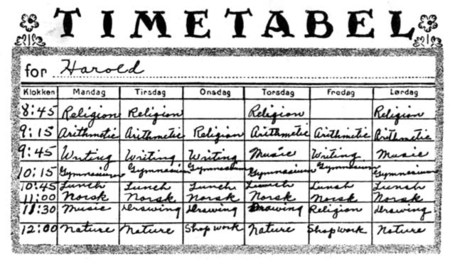 TIMETABEL
for Harold
Klokken Mandag Tirsdag Onsdag Torsdag Fredag Lørdag
8:45 Religion Religion Religion Religion
9:15 Arithmetic Arithmetic Religion Arithmetic Arithmetic Arithmetic
9:45 Writing Writing Writing Music Writing Music
10:15 Gymnasium Gymnasium Gymnasium Gymnasium Gymnasium Gymnasium
10:45 Lunch Lunch Lunch Lunch Lunch Lunch
11:00 Norsk Norsk Norsk Norsk Norsk Norsk
11:30 Music Drawing Drawing Drawing Religion Drawing
12:00 Nature Nature Shopwork Nature Shopwork Nature